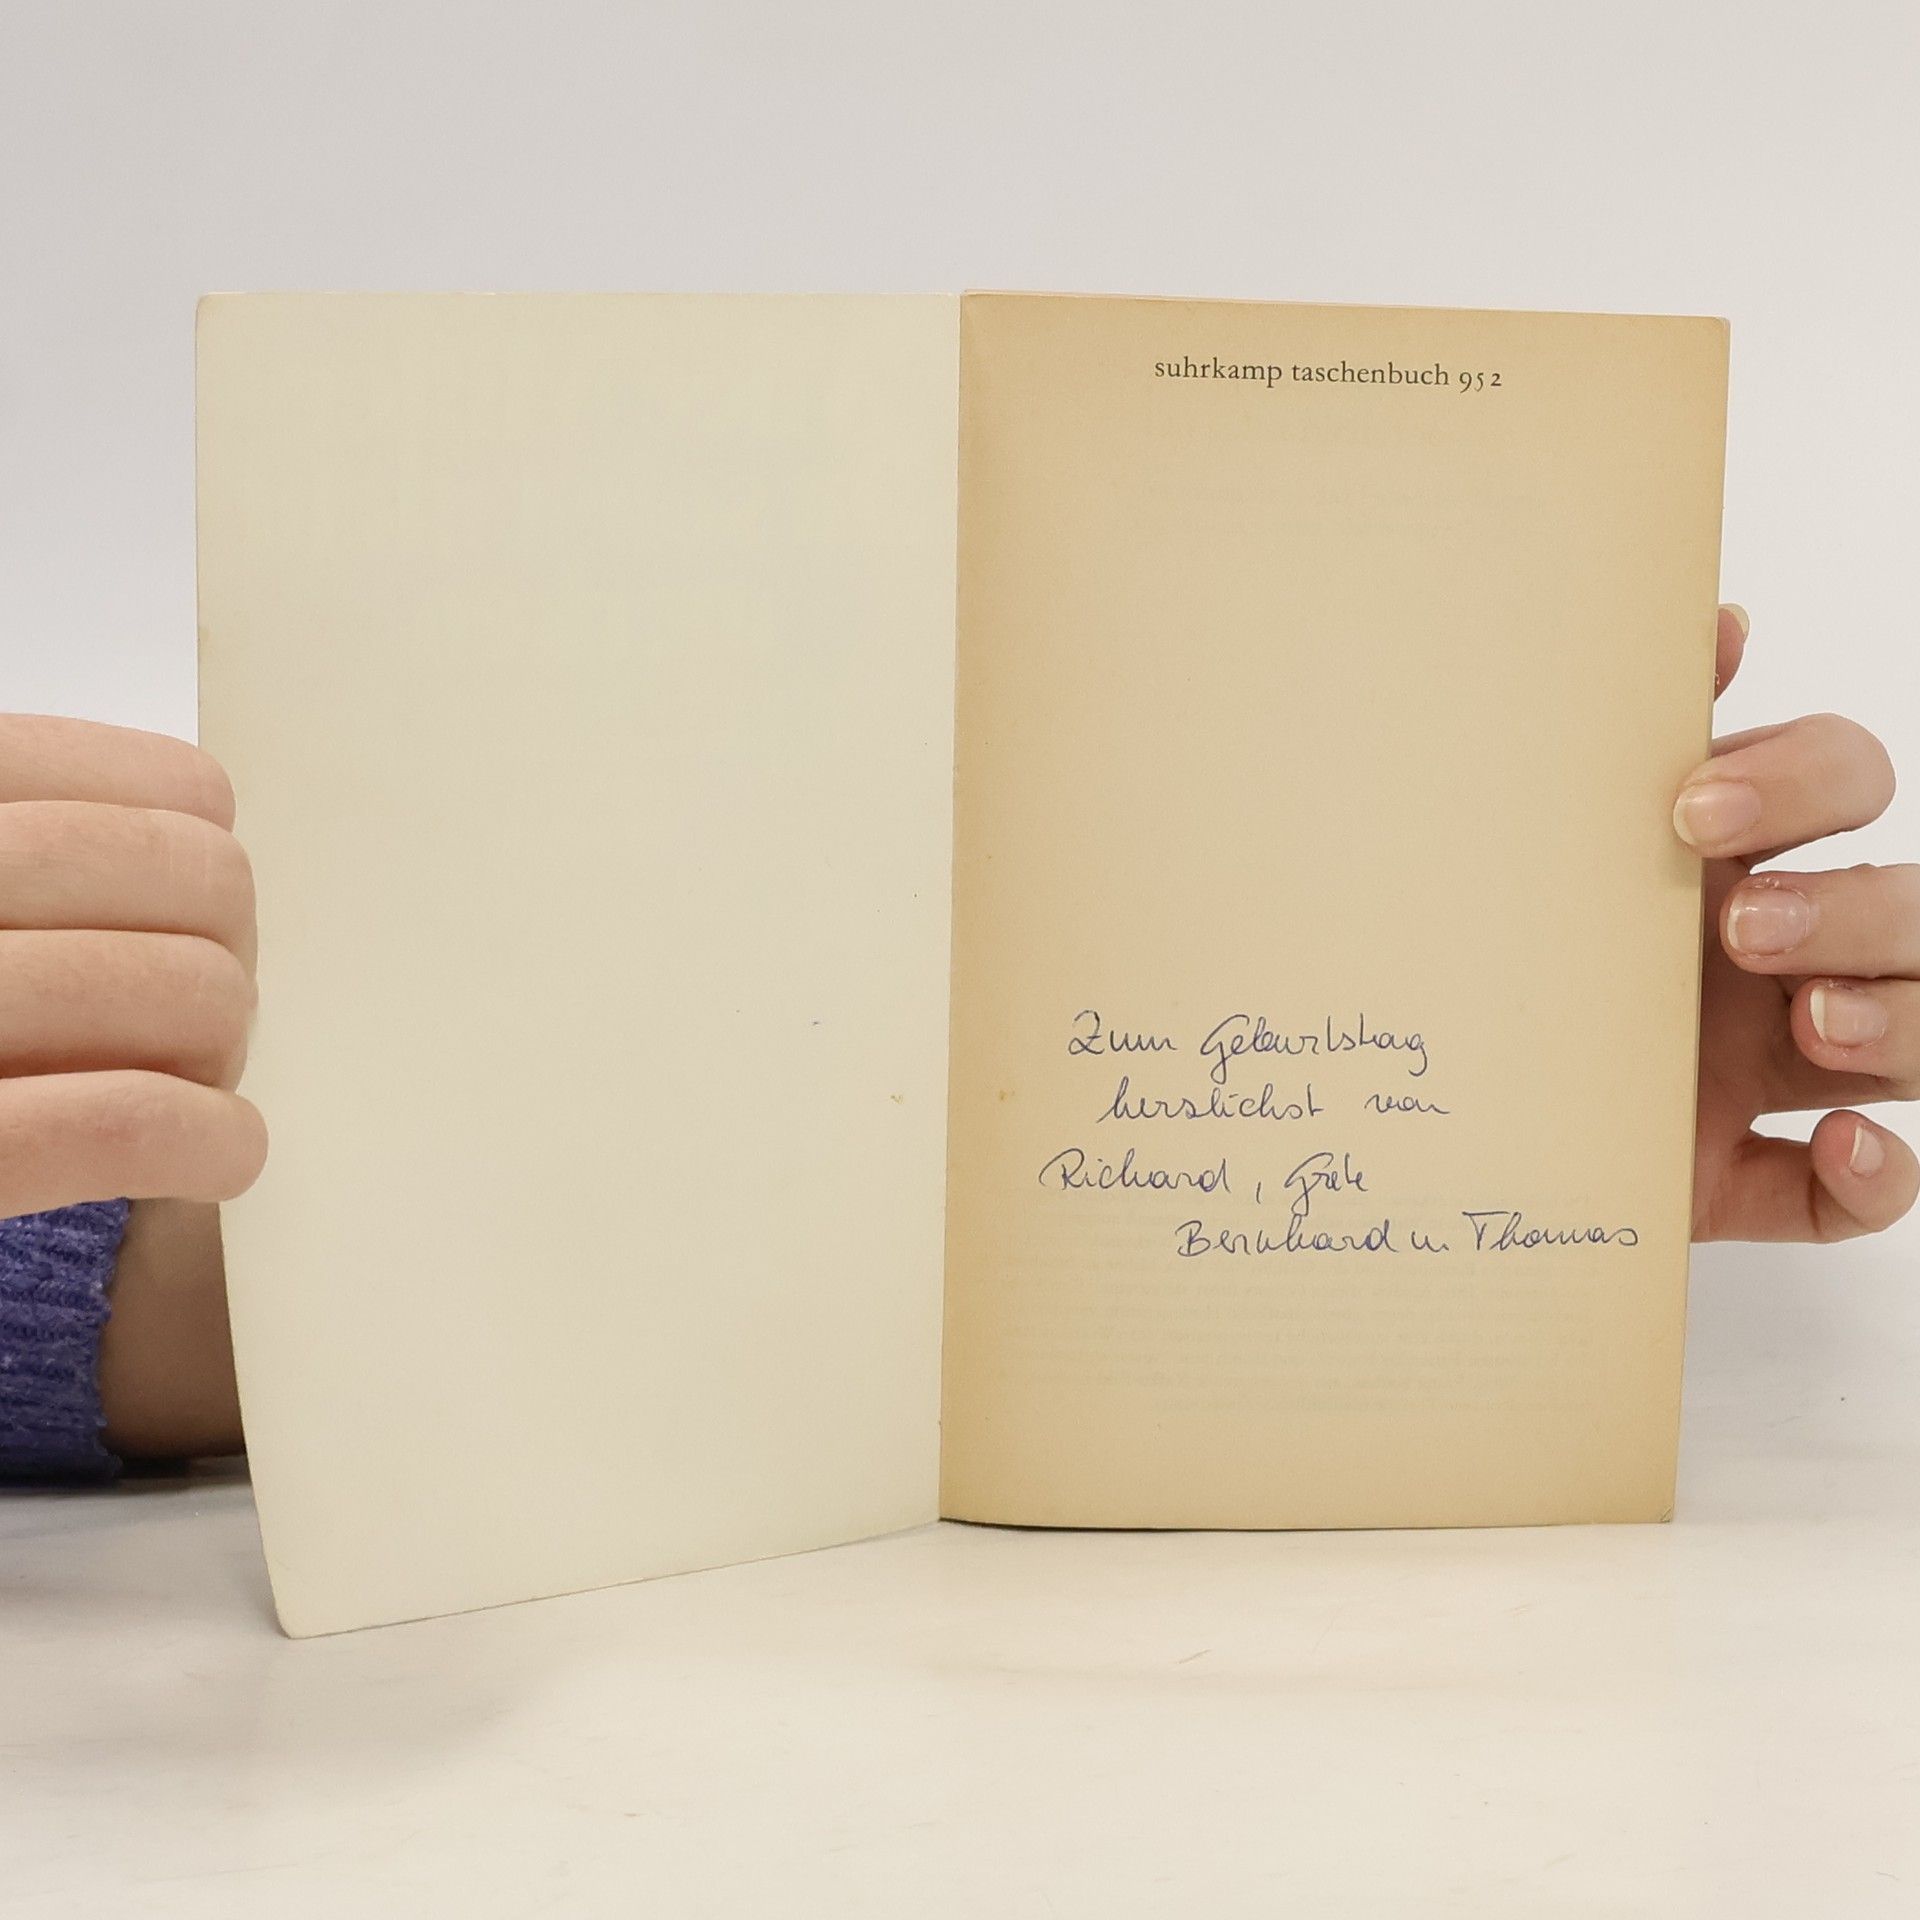 suhrkamp taschenbuch 952
Zum Geburtstag
herzlichst von
Richard, Grete
Bernhard u. Thomas